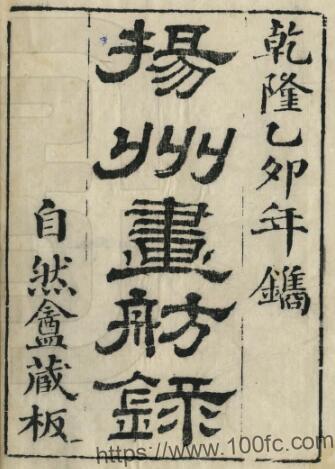 乾隆乙卯年鐫
揚州畫舫錄
自然盦藏板
https://www.100fc.com